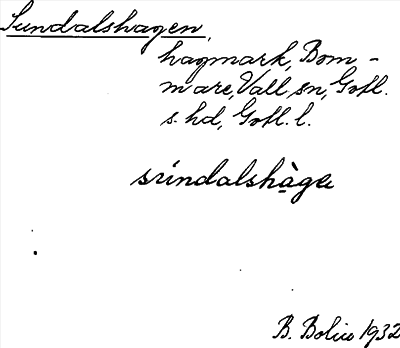 Sundalshagen,
hagmark, Bom-
mare, Vall sn, Gotl.
s. hd, Gotl. l.
sṙindalshàga
B. Bolin 1932